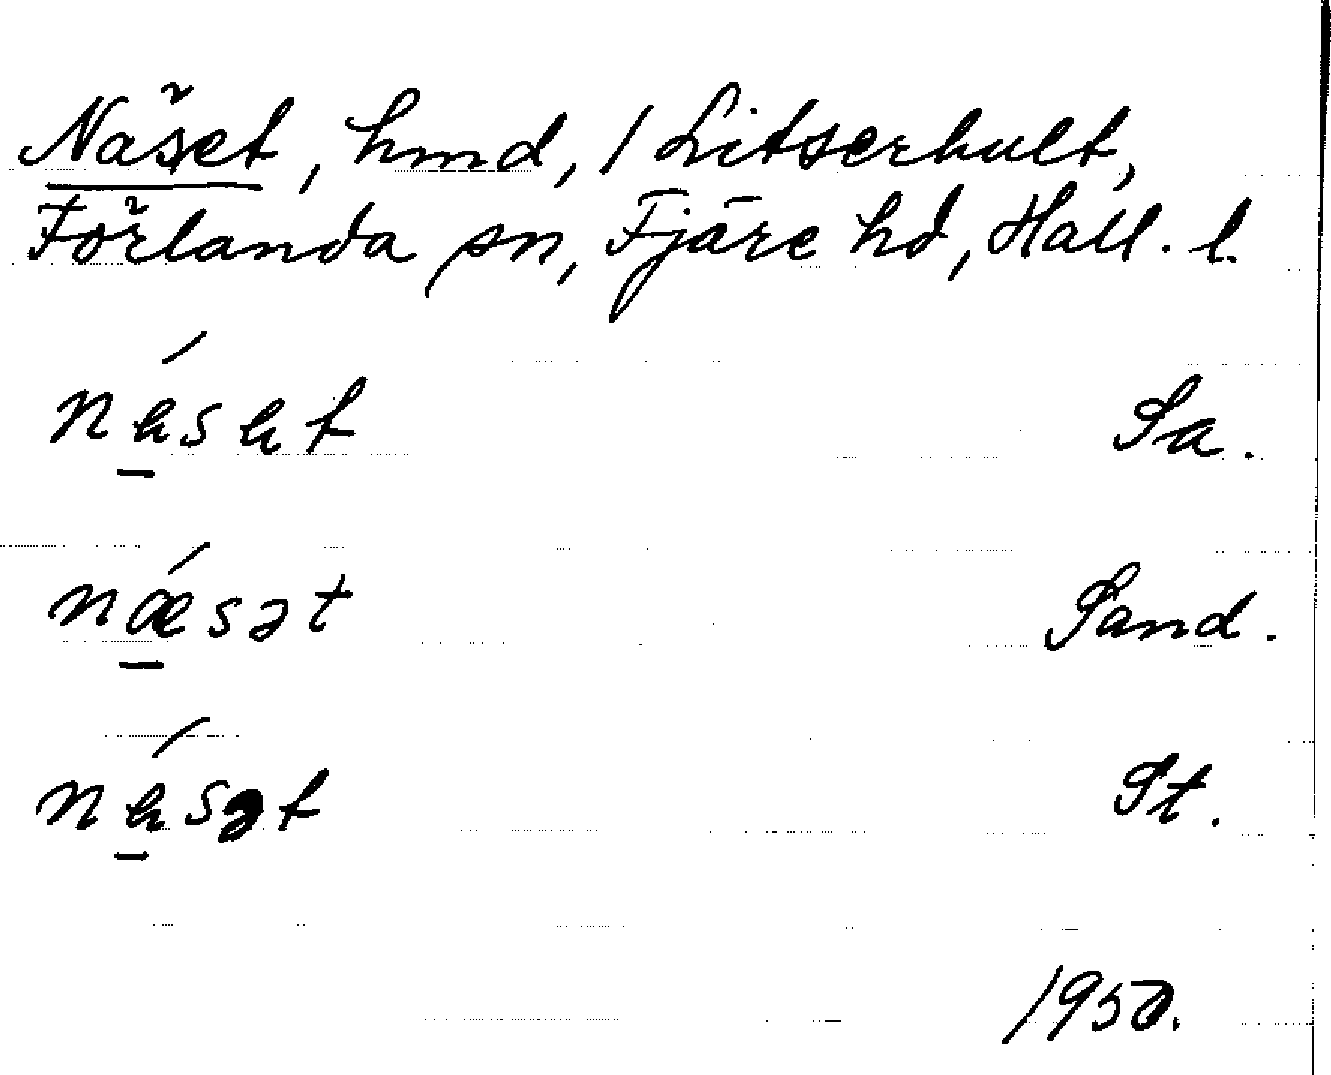 Näset, hmd, / Litserhult,
Förlanda sn, Fjäre hd, Hall. l.
nǽ̲sæt Sa.
nǽ̲sət Sand.
nǽ̲sət St.
1950.